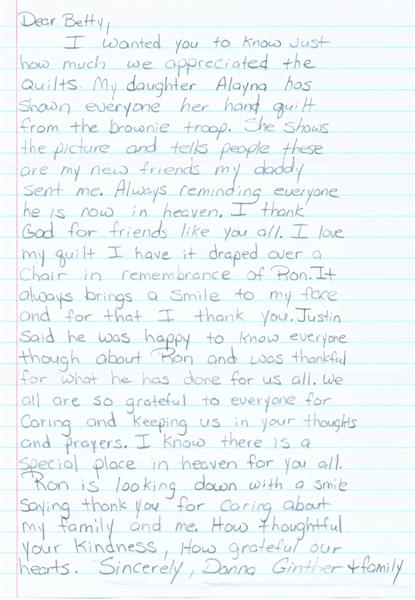 Dear Betty,
I wanted you to know just
how much we appreciated the
Quilts. My daughter Alayna has
shown everyone her hand quilt
from the brownie troop. She shows
the picture and tells people these
are my new friends my daddy
sent me. Always reminding everyone
he is now in heaven. I thank
God for friends like you all. I love
my quilt I have it draped over a
Chair in remembrance of Ron. It
always brings a smile to my face
and for that I thank you. Justin
said he was happy to know everyone
though about Ron and was thankful
for what he has done for us all. We
all are so grateful to everyone for
Caring and keeping us in your thoughts
and prayers. I know there is a
special place in heaven for you all.
Ron is looking down with a smile
saying thank you for caring about
my family and me. How thoughtful
your kindness, How grateful our
hearts. Sincerely, Donna Ginther & family